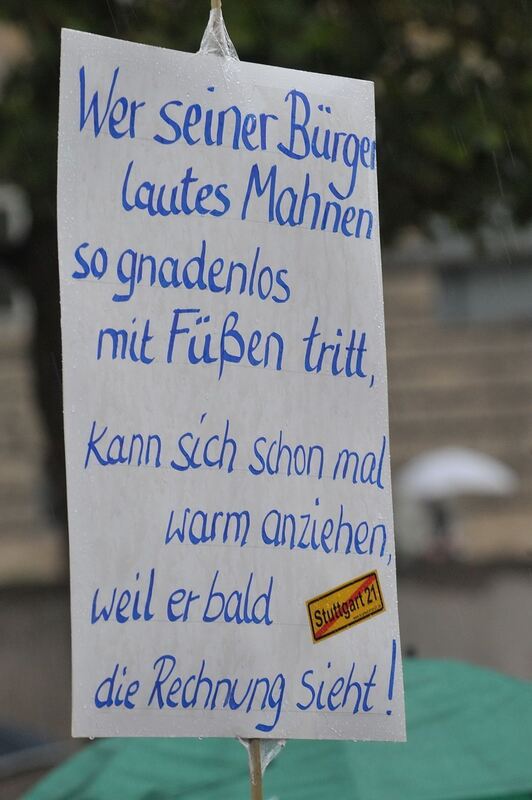 Wer seiner Bürger
lautes Mahnen
so gnadenlos
mit Füßen tritt,
kann sich schon mal
warm anziehen,
weil er bald
Stuttgart 21
die Rechnung sieht!